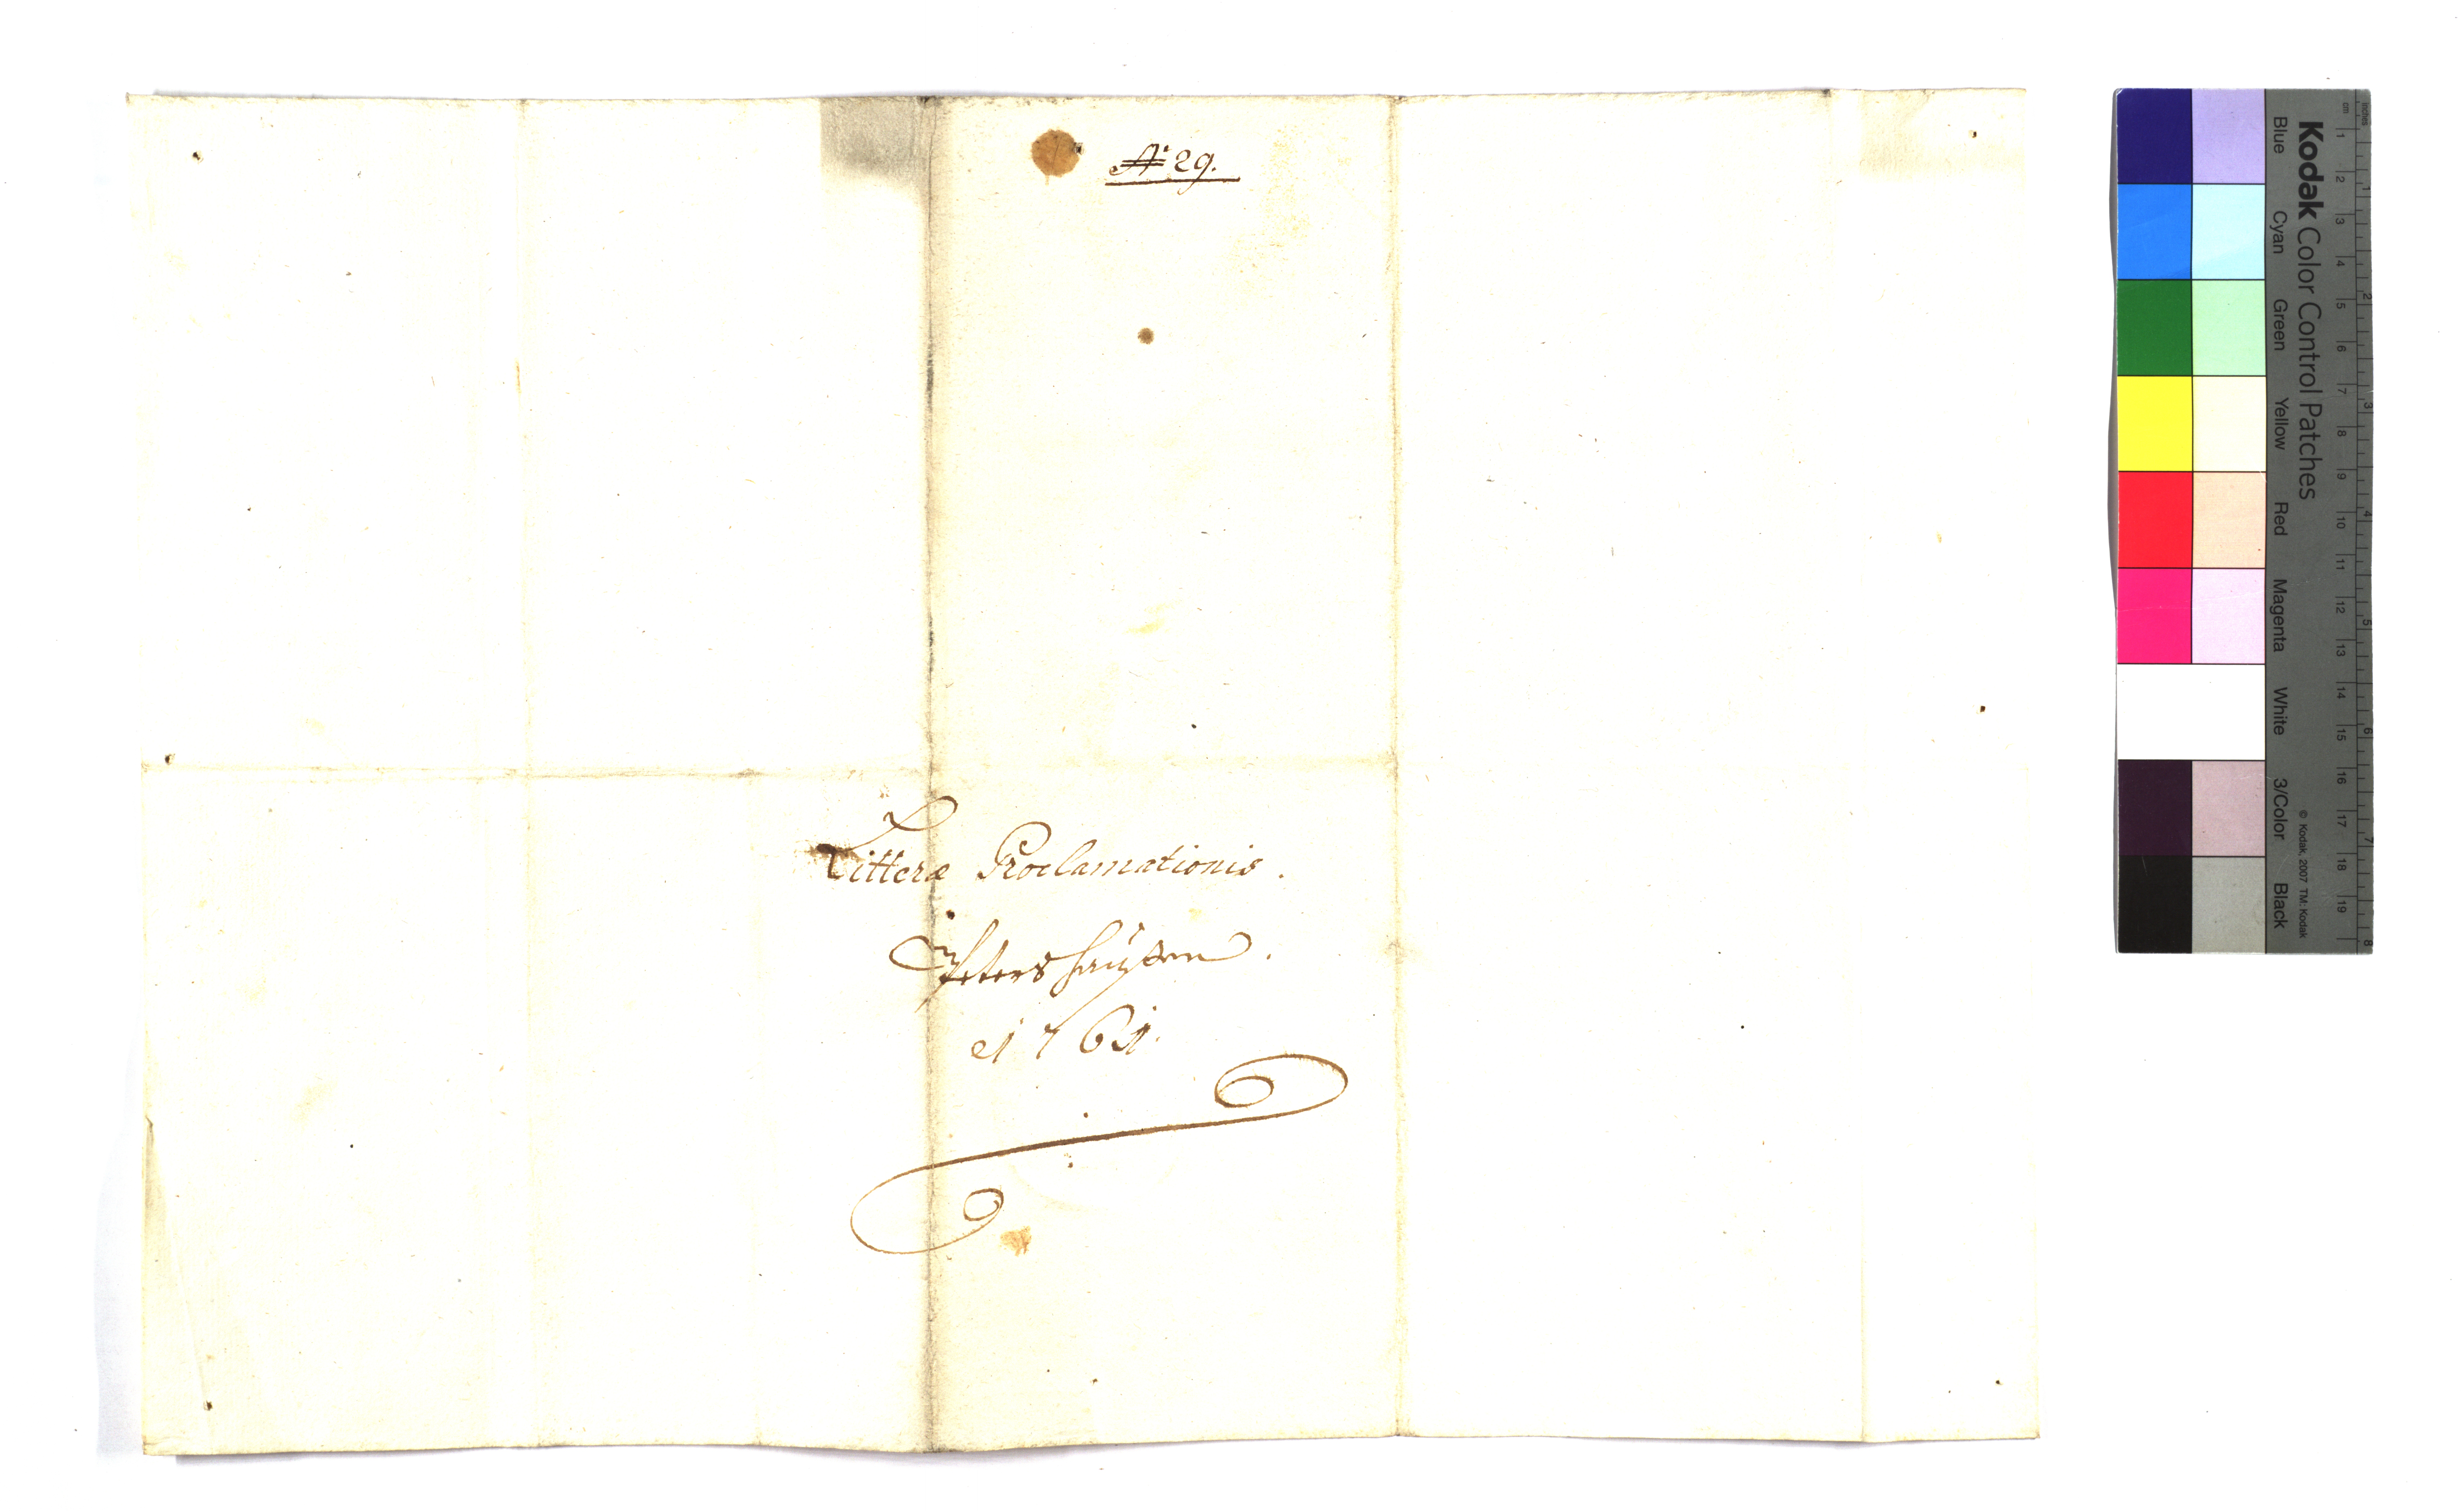 N° 29.
Litteræ Proclamationis.
Petershaußen.
1761.
Kodak Color Control Patches
© Kodak, 2007 TM: Kodak
Blue Cyan Green Yellow Red Magenta White 3/Color Black
inches 1 2 3 4 5 6 7 8
cm 1 2 3 4 5 6 7 8 9 10 11 12 13 14 15 16 17 18 19